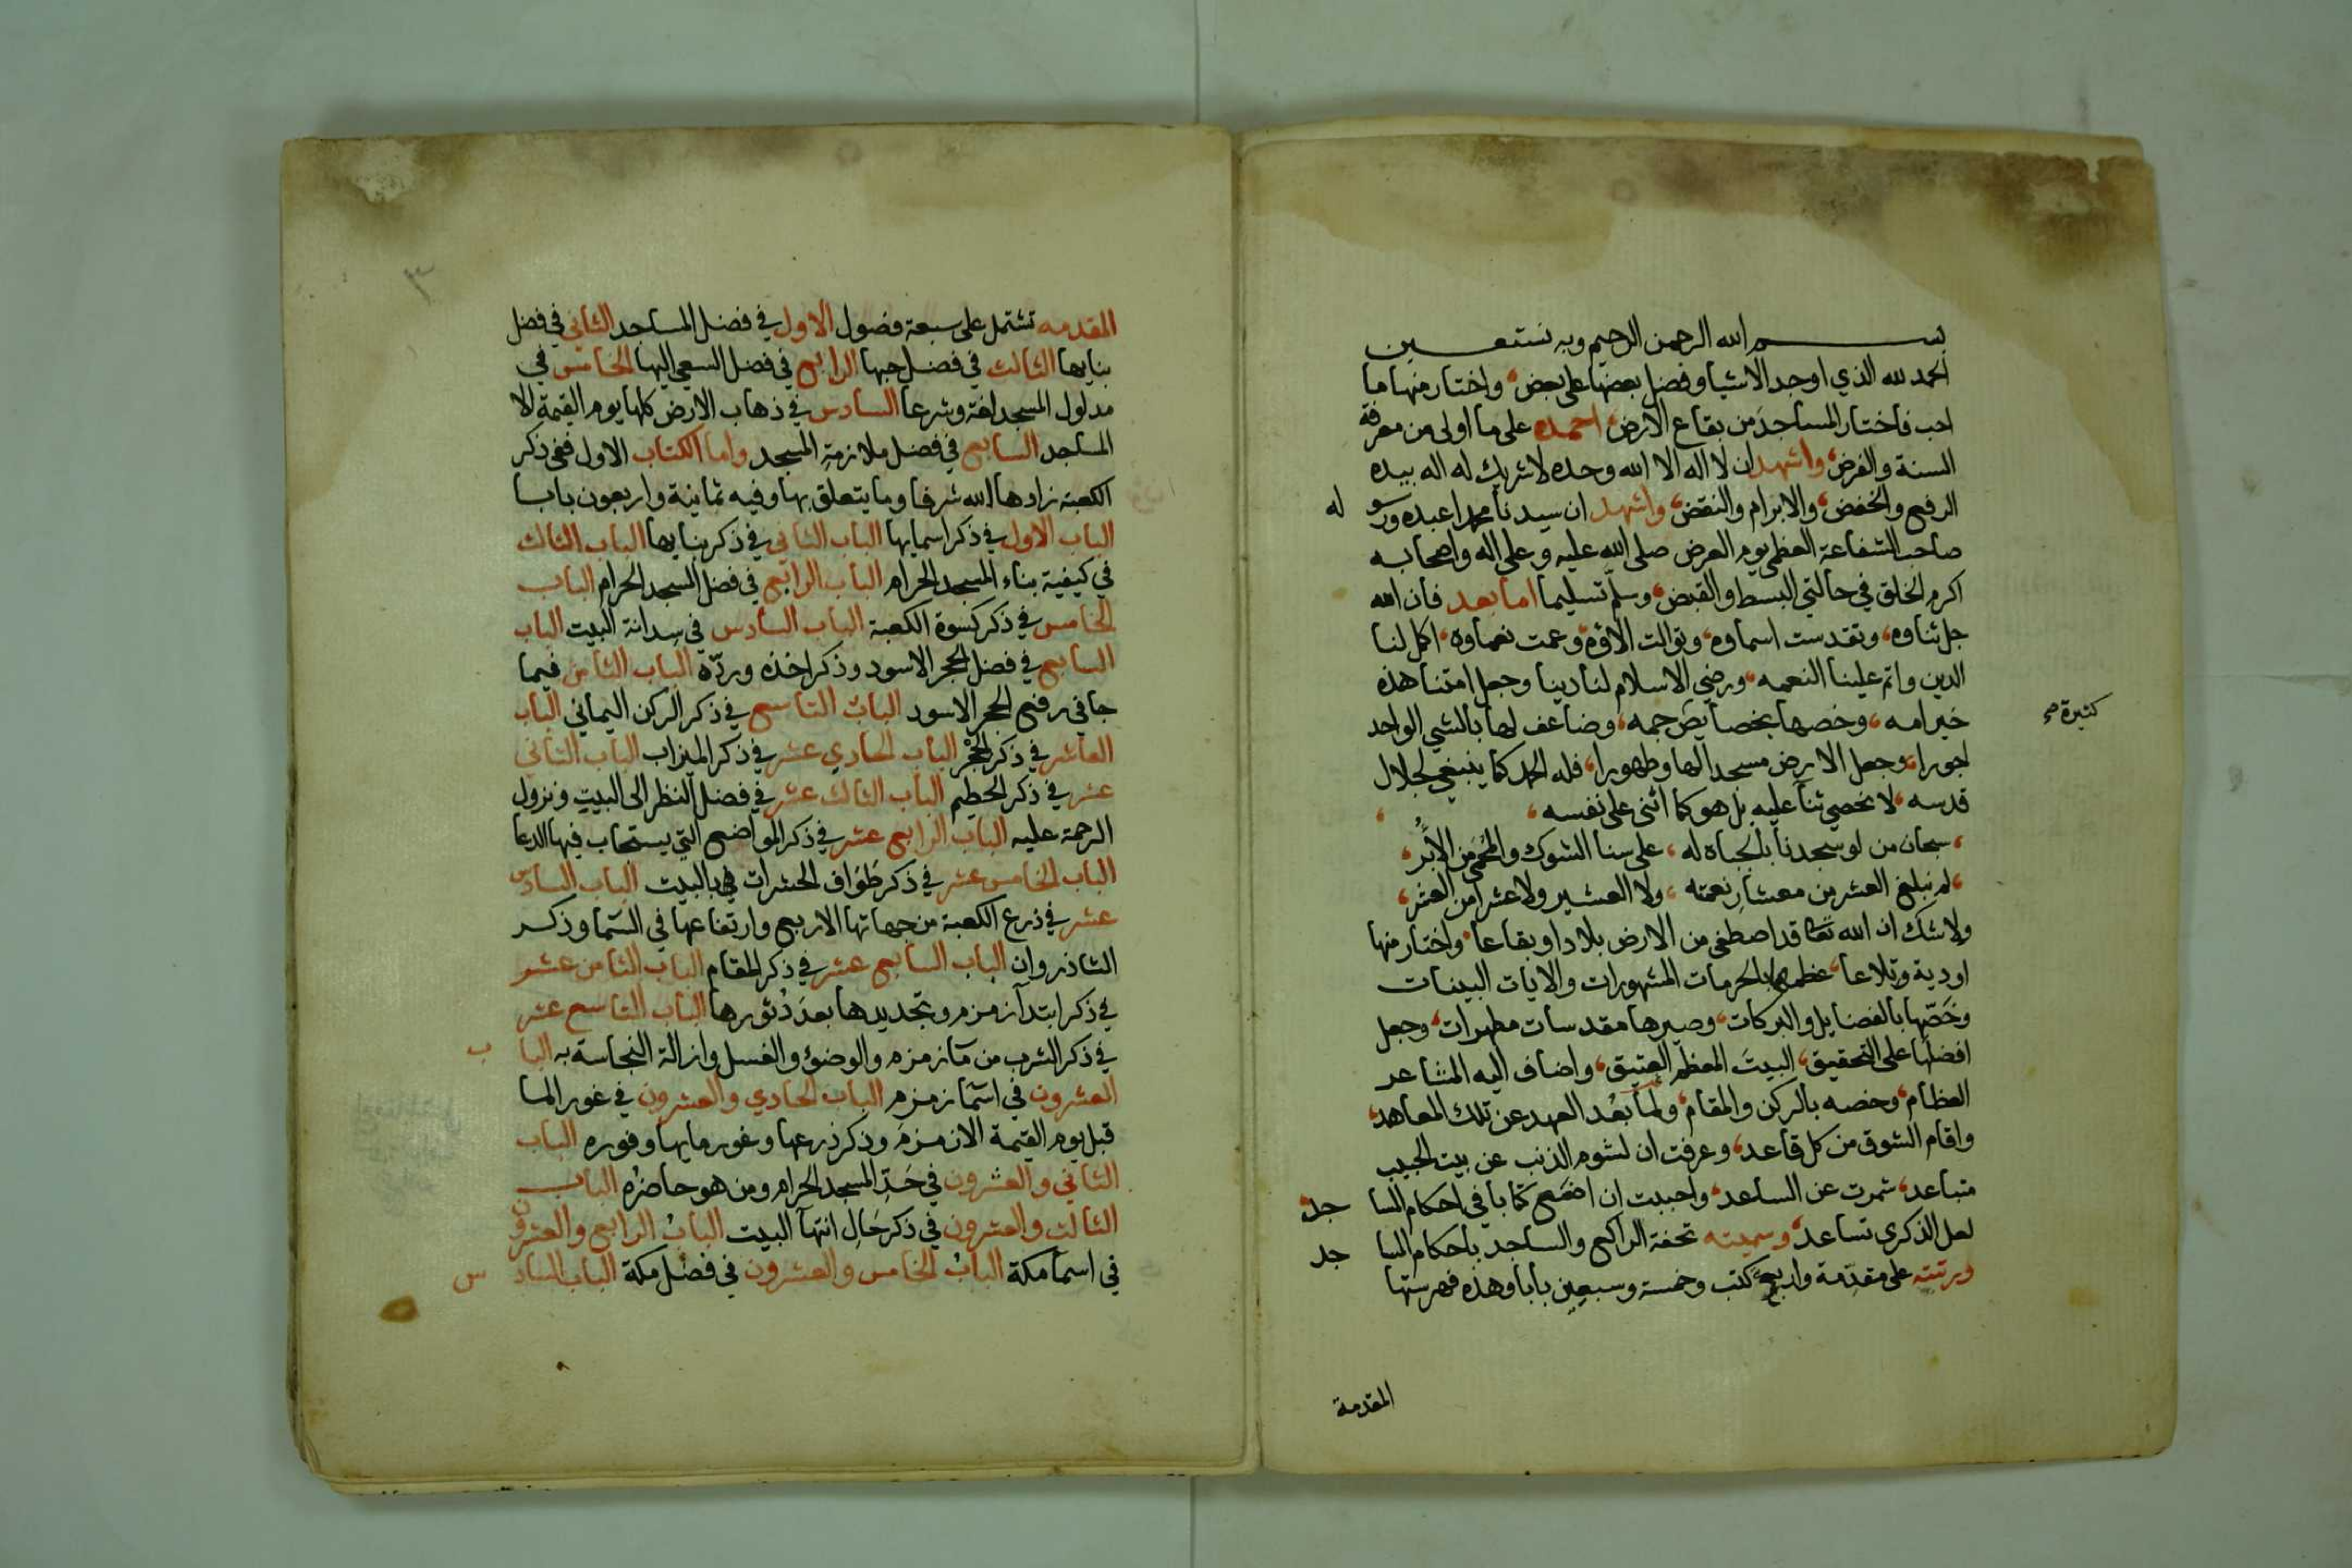 بسم الله الرحمن الرحيم وبه نستعين
الحمد لله الذي اوجد الاشيا وفضل بعضها على بعض، واختار منها ما
احب فاختار المساجد من بقاع الارض، احمده على ما اولى من معرفة
السنة والفرض، واشهد ان لا اله الا الله وحده لا شريك له اله بيده
الرفع والخفض، والابرام والنقض، واشهد ان سيدنا محمدا عبده ورسو له
صاحب الشفاعة العظمى يوم العرض صلى الله عليه وعلى اله واصحابه
اكرم الخلق في حالتي البسط والقبض، وسلم تسليما اما بعد فان الله
جل ثناوه، وتقدست اسماوه، وتوالت الاؤه، وعمت نعماوه، اكمل لنا
الدين واتم علينا النعمه، ورضي الاسلام لنا دينا وجعل امتنا هذه
خير امه، وخصها بخصايص جمه، وضاعف لها بالشي الواحد
كثيرة صح
اجورا، وجعل الارض مسجدا لها وطهورا، فله الحمد كما ينبغي لجلال
قدسه، لا نحصي ثنا عليه بل هو كما اثنى على نفسه،
، سبحان من لو سجدنا بالجباه له، على سنا الشوك والمحمى من الابر،
، لم نبلغ العشر من معشار نعمته، ولا العشير ولا عشرا من العشر،
ولا شك ان الله تعا قد اصطفى من الارض بلادا وبقاعا، واختار منها
اودية وتلاعا، عظمها بالحرمات المشهورات والايات البينات
وخَصّها بالفضايل والبركات، وصيرها مقدسات مطهرات، وجعل
افضلها على التحقيق، البيتَ المعظم العتيق، واضاف اليه المشاعر
العظام، وخصه بالركن والمقام، ولما بعُد العهد عن تلك المعاهد،
واقام الشوق من كل قاعد، وعرفت ان لشوم الذنب عن بيت الحبيب
متباعد، شمرت عن الساعد، واحببت ان اضع كتابا في احكام المسا جد
لعل الذكرى تساعد، وسميته تحفة الراكع والساجد باحكام المسا جد
ورتبته على مقدمة واربع كتب وخمسة وسبعين بابا وهذه فهرستها
المقدمة
٣
المقدمه تشتمل على سبعة فصول الاول في فضل المساجد الثاني في فضل
بنايها الثالث في فضل حبها الرابع في فضل السعي اليها الخامس في
مدلول المسجد لغة وشرعا السادس في ذهاب الارض كلها يوم القيمة الا
المساجد السابع في فضل ملازمة المسجد واما الكتاب الاول ففي ذكر
الكعبة زادها الله شرفا وما يتعلق بها وفيه ثمانية واربعون بابا
الباب الاول في ذكر اسمايها الباب الثاني في ذكر بنايها الباب الثالث
في كيفية بناء المسجد الحرام الباب الرابع في فضل المسجد الحرام الباب
الخامس في ذكر كسوة الكعبة الباب السادس في سدانة البيت الباب
السابع في فضل الحجر الاسود وذكر اخذه وردّه الباب الثامن فيما
جا في رفع الحجر الاسود الباب التاسع في ذكر الركن اليماني الباب
العاشر في ذكر الحِجْر الباب الحادي عشر في ذكر الميزاب الباب الثاني
عشر في ذكر الحطيم الباب الثالث عشر في فضل النظر الى البيت ونزول
الرحمة عليه الباب الرابع عشر في ذكر المواضع التي يستجاب فيها الدعا
الباب الخامس عشر في ذكر طَوَاف الحشرات بالبيت الباب السادس
عشر في ذرع الكعبة من جهاتها الاربع وارتفاعها في السما وذكر
الشاذروان الباب السابع عشر في ذكر المقام الباب الثامن عشر
في ذكر ابتدآ زمزم وتجديدها بعدَ دُثورها الباب التاسع عشر
في ذكر الشرب من مآ زمزم والوضؤ والغسل وازالة النجاسة به البا ب
العشرون في اسمآ زمزم الباب الحادي والعشرون في غور الما
قبل يوم القيمة الا زمزم وذكر ذرعها وغور مايها وفوره الباب
الثاني والعشرون في حَدِّ المسجد الحرام ومن هو حاضره الباب
الثالث والعشرون في ذكر حَالِ انتهآ البيت البابُ الرابع والعشرون
في اسما مكة البابُ الخامس والعشرون في فضل مكة الباب الساد س